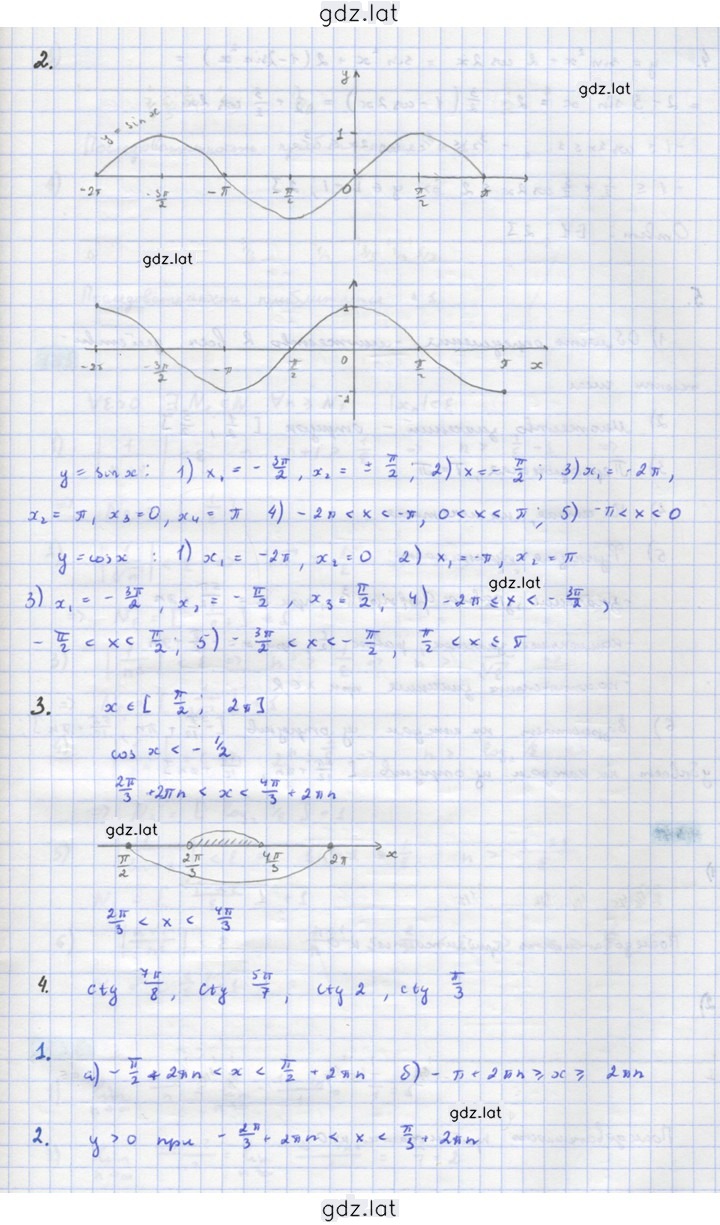 gdz.lat
2.
gdz.lat
y = sin x
y
1
-2π -3π/2 -π -π/2 0 π/2 π
gdz.lat
1
-2π -3π/2 -π π/2 0 π/2 π x
-1
y = sin x : 1) x₁ = - 3π/2, x₂ = ± π/2 ; 2) x = - π/2 ; 3) x₁ = -2π,
x₂ = π, x₃ = 0, x₄ = π 4) -2π < x < -π, 0 < x < π ; 5) -π < x < 0
y = cos x : 1) x₁ = -2π, x₂ = 0 2) x₁ = -π, x₂ = π
gdz.lat
3) x₁ = - 3π/2, x₂ = - π/2, x₃ = π/2 ; 4) -2π ≤ x < - 3π/2,
- π/2 < x < π/2 ; 5) - 3π/2 < x < - π/2, π/2 < x ≤ π
3. x ∈ [ π/2 ; 2π]
cos x < - 1/2
2π/3 + 2πn < x < 4π/3 + 2πn
gdz.lat
π/2 2π/3 4π/3 2π x
2π/3 < x < 4π/3
4. ctg 7π/8, ctg 5π/7, ctg 2, ctg π/3
1. а) - π/2 + 2πn < x < π/2 + 2πn б) - π + 2πn ≥ x ≥ 2πn
gdz.lat
2. y > 0 при - 2π/3 + 2πn < x < π/3 + 2πn
gdz.lat